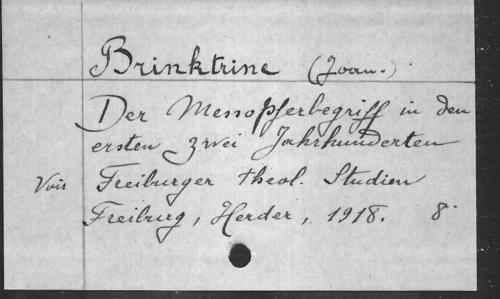 Brinktrine (Joan.)
Der Messopferbegriff in den
ersten zwei Jahrhunderten
Voir Freiburger theol. Studien
Freiburg, Herder, 1918. 8°